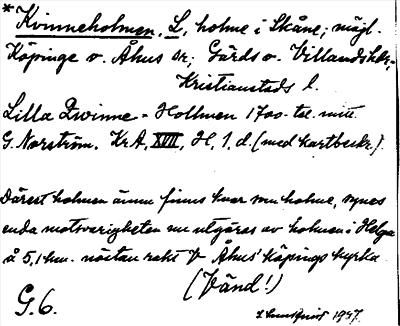 * Kvinneholmen, L., holme i Skåne; möjl.
Köpinge o. Åhus sr; Gärds o. Villands hdr,
Kristianstads l.
Lilla Qwinne-Hollmen 1700-tal mitt
G. Norström. Kr.A, XVII, H, 1, d. (med kartbeskr.).
Därest holmen ännu finns kvar som holme, synes
enda motsvarigheten nu utgöras av holmen i Helga
å 5,1 km. nästan rakt V Åhus' köpings kyrka
(Vänd!)
G. 6. 1957.